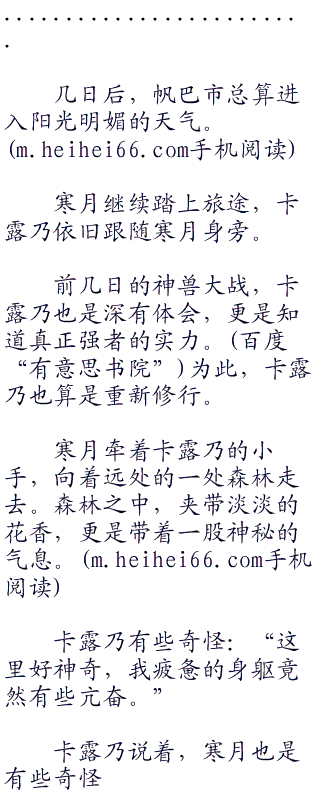 .........................
.
几日后，帆巴市总算进
入阳光明媚的天气。
(m.heihei66.com手机阅读)
寒月继续踏上旅途，卡
露乃依旧跟随寒月身旁。
前几日的神兽大战，卡
露乃也是深有体会，更是知
道真正强者的实力。(百度
“有意思书院”)为此，卡露
乃也算是重新修行。
寒月牵着卡露乃的小
手，向着远处的一处森林走
去。森林之中，夹带淡淡的
花香，更是带着一股神秘的
气息。(m.heihei66.com手机
阅读)
卡露乃有些奇怪：“这
里好神奇，我疲惫的身躯竟
然有些亢奋。”
卡露乃说着，寒月也是
有些奇怪